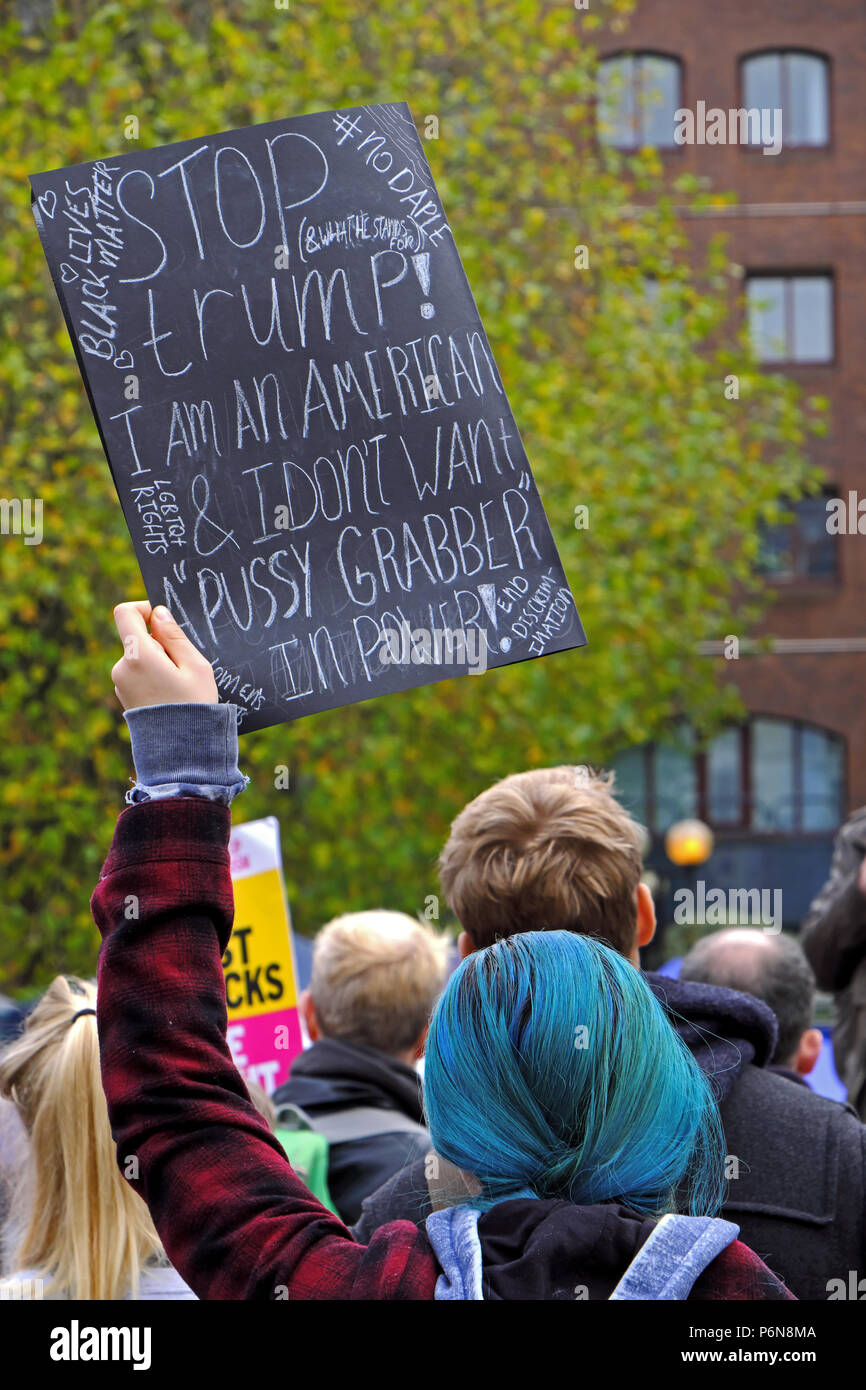 STOP
(& WHAT HE STANDS
FOR)
trump!
I AM AN AMERICAN
& I DON'T WANt
A "PUSSY GRABBER"
IN POWER!
#NODAPL
♡ BLACK LIVES
MATTER
LGBTQ+
RIGHTS
END
DISCRIM
INATION
WOMENS
ST
CKS
E
alamy
alamy
Image ID: P6N8MA
www.alamy.com